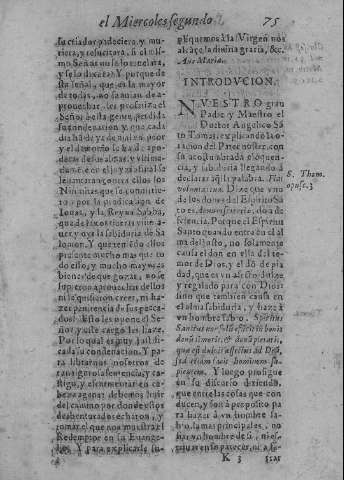 el Miercoles segundo. 75
su criador padeciera, y mu-
riera, y resucitara, si el mis-
mo Señor no se lo
y se lo dixera? Y porque de
esta señal, que es la mayor
de todas, no se avian de
aprovechar, les profetiza el
Señor
su condenacion, y que cada
dia ha de yr de mal en peor
y el demonio se ha de apo-
derar de sus almas, y vltima-
mente en el
se levantaron contra ellos los
Ninivitas, que se convirtie-
ron por la predicacion de
Ionas, y la Reyna Sabba,
que de lexos tierras vino a
ver y oyr la sabiduria de Sa-
lomon. Y que teniendo ellos
presente mucho mas que to-
do esso, y mucho mayores
bienes de que gozar, no se
supieron aprovechar dellos
ni le quisieron creer, ni ha-
zer penitencia de sus peca-
dos. Esto les opone el Se-
ñor, y este cargo les haze.
Por lo qual es muy justifi-
cada su condenacion. Y pa-
ra librarnos nosotros de
tan rigurosa sentencia, y cas-
tigo, y
beças agenas: debemos huir
del camino por donde estos
desventurados echaron, y
tomar el que nos muestra el
Redemptor en su Evange-
lio. Y para explicarle su-
pliquemos à la Virgen nos
alcance la divina gracia, &c.
Ave Maria.
INTRODVCION.
NVESTRO gran
Padre y Maestro el
Doctor Angelico Sã-
to Tomas explicando la o-
racion del Pater noster, con
su acostumbrada eloquen-
cia, y sabiduria llegando à
declarar aquella palabra. Fiat
voluntas tua. Dize que vno
de los dones del Espiritu Sã
to es: donum scientiæ, don de
sciencia. Porque el Espiritu
Santo quando entra en el al
ma del justo, no solamente
causa el don en ella del te-
mor de Dios, y el dõ de pie
dad, que es vn afecto dulce,
y regalado para con Dios:
sino que tambien causa en
el alma sabiduria, y haze à
vn hombre sabio. Spiritus
Sanctus non solum efficit in bonis
donum timoris, & donum pietatis,
quæ est dulcis affectus ad Deũ,
sed etiam facit hominem sa-
pientem. Y luego prosigue
en su discurso diziendo,
que entre las cosas que con
ducen, y son à proposito pa
ra hazer à vn hombre sa-
bio, la mas principal es, no
fiar vn hombre de si, ni es-
tribar en su parecer, ni a se-
S. Thom.
opusc. 3
K 3